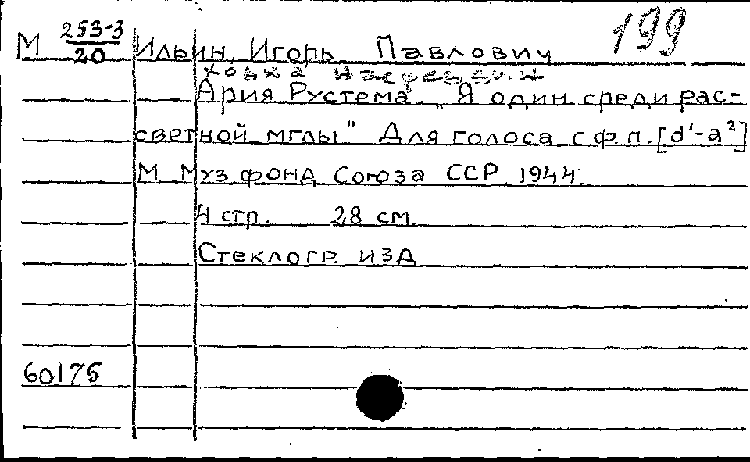 199
М 253-3/20 Ильин, Игорь Павлович
Ария Рустема "Я один среди рас-
светной мглы" Для голоса с ф.п. [d'-a²]
М Музфонд Союза ССР 1944
4 стр. 28 см.
Стеклогр изд
60175